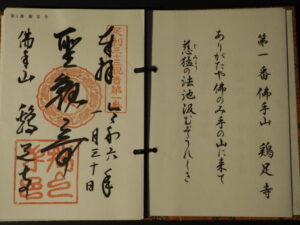 第一番佛手山 鶏足寺
ありがたや佛のみ手の山に来て
慈猛の法池汲むぞうれしき
足利三十三観音第一番
奉拝 令和六年
一月三十日
聖観音
佛手山 鶏足寺